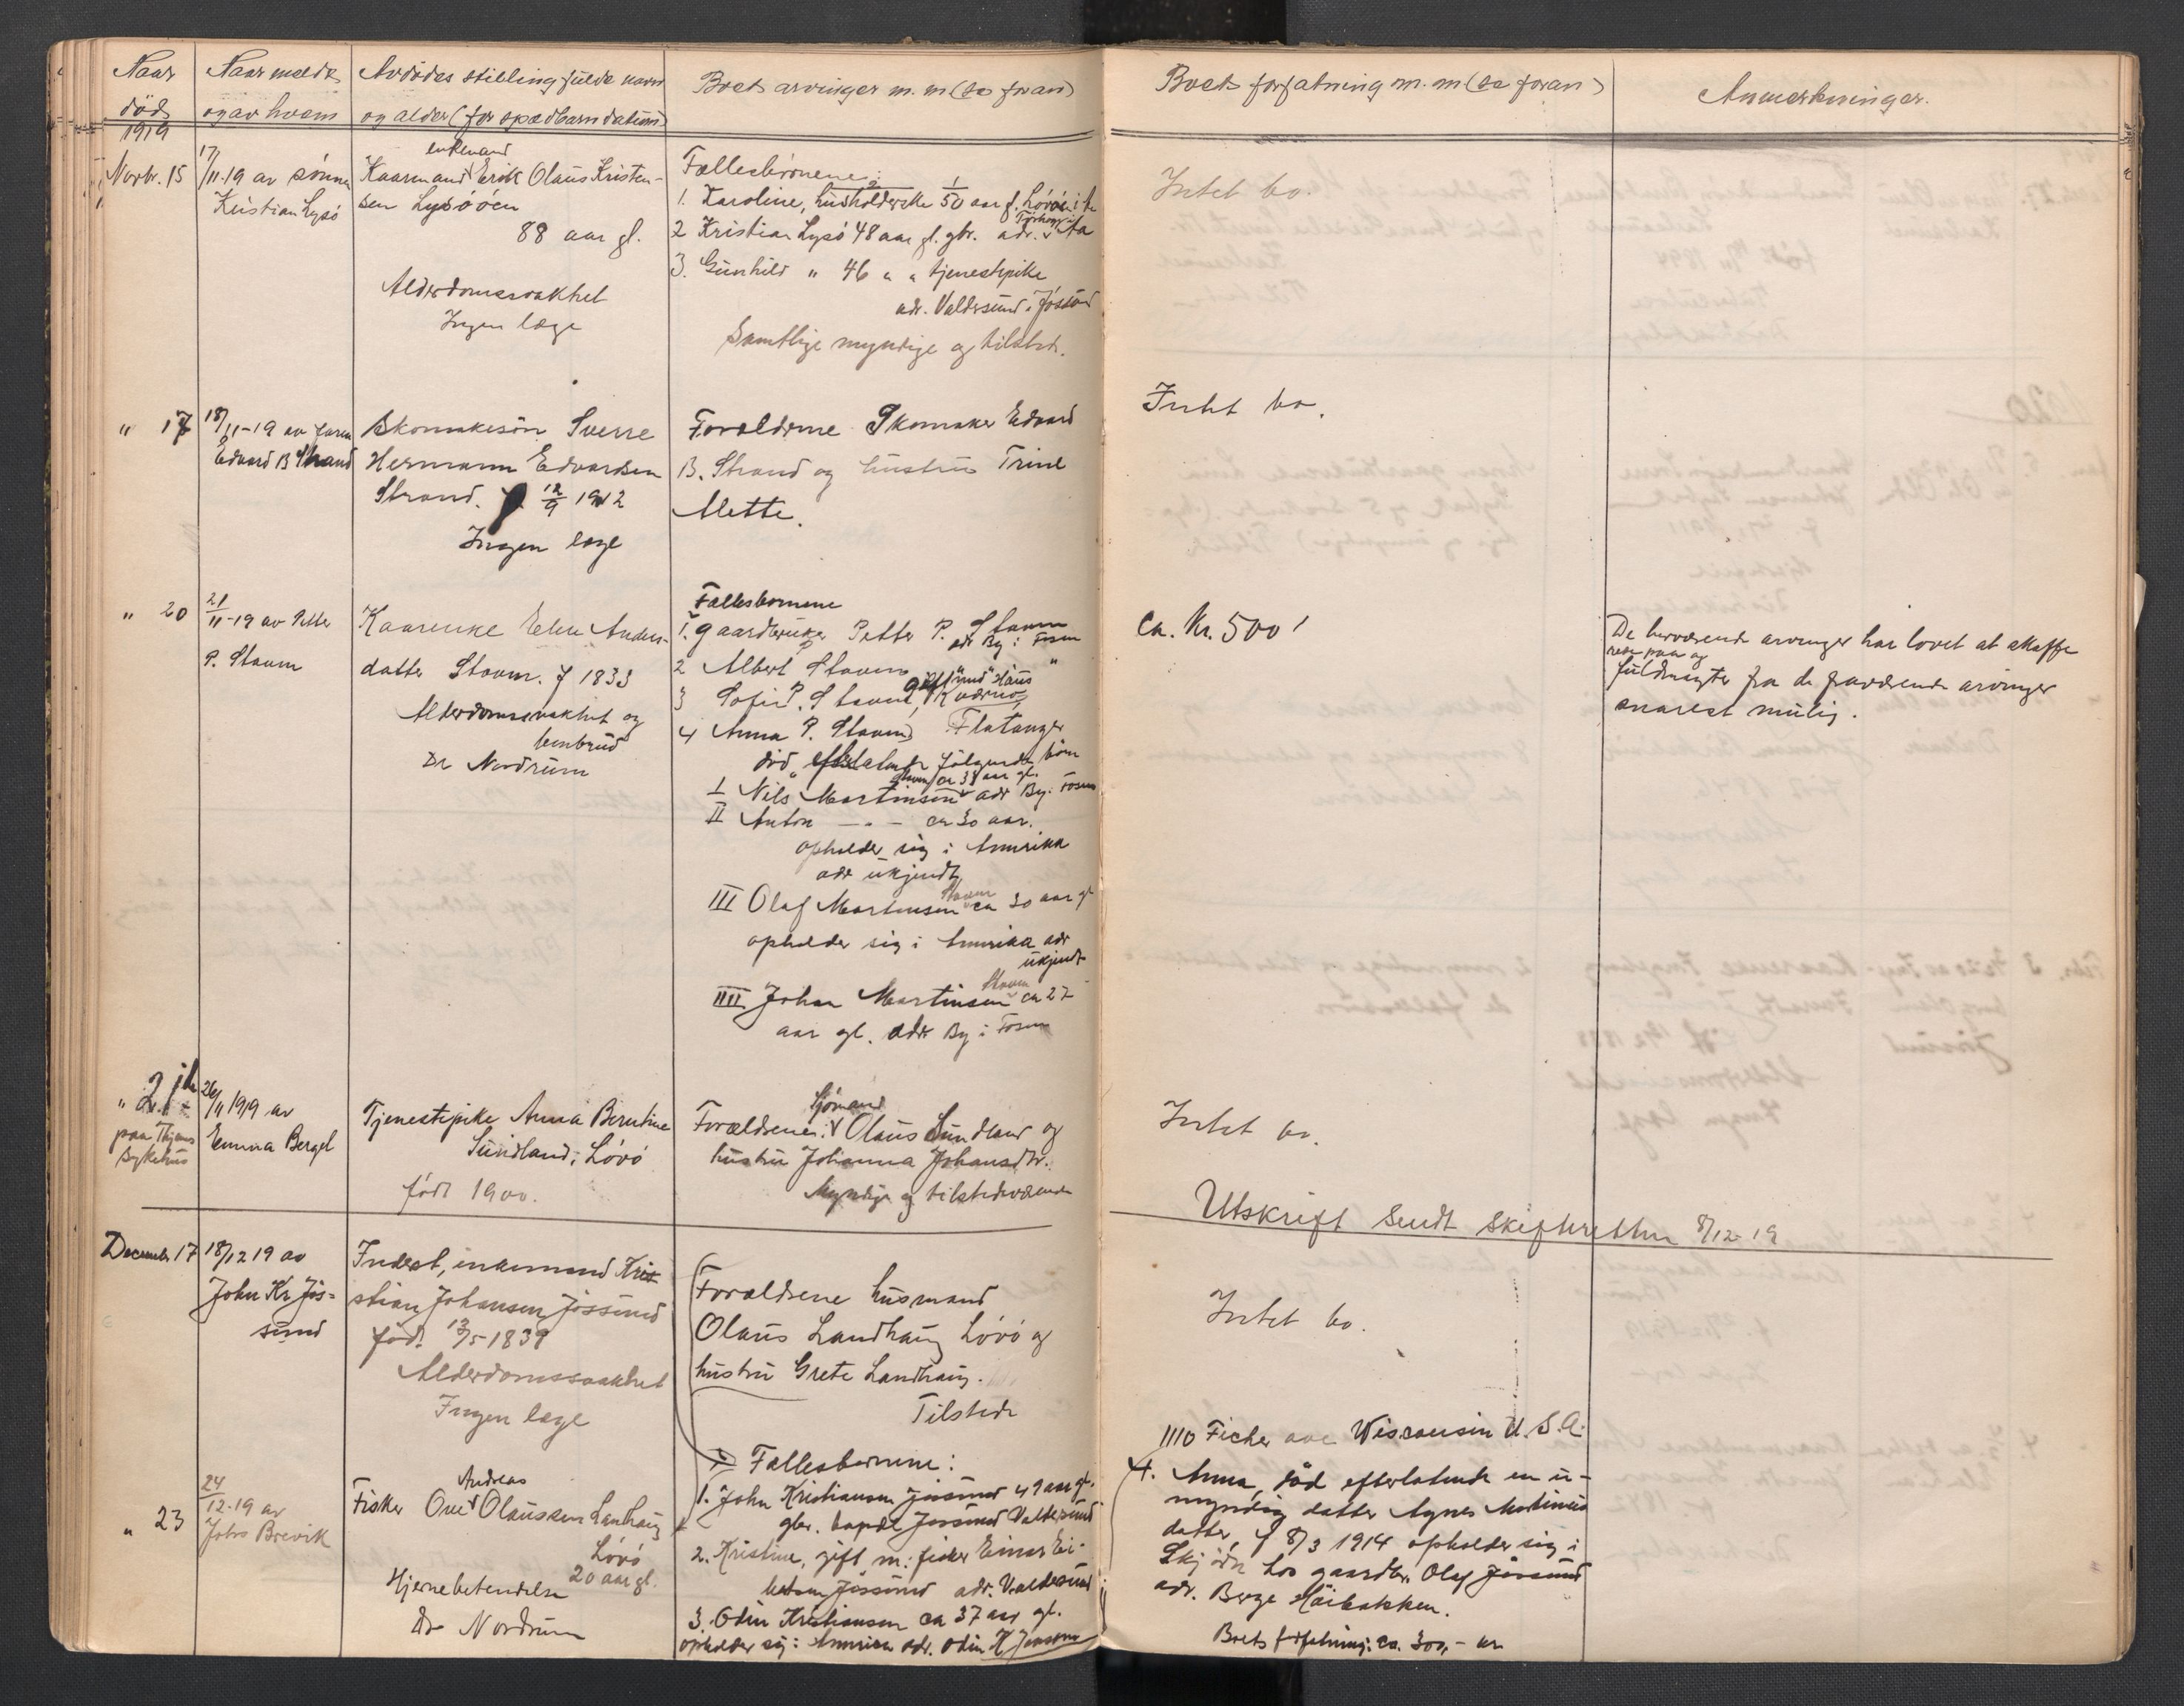 Naar
död
1919
Naar meldt
og av hvem
Avdödes stilling fulde navn
og alder (for spædbarn datum)
Boets arvinger m. m (se foran)
Boets forfatning m. m (se foran)
Anmerkninger.
Novbr. 15
17/11-19 av sönnen
Kristian Lysö
enkemand
Kaarmand Erik Olaus Kristen-
sen Lysööen
88 aar gl.
Alderdomssvakhet
Ingen læge
Fællesbörnene:
1. Karoline, husholderske 50 aar g.
2 Kristian Lysö 48 aar gl. gbr. adr.
3. Gunhild " 46 " " tjenestepike
adr. Valdersund i Jössund
Samtlige myndige og tilstede.
Intet bo.
" 17
18/11-19 av faren
Edvard B Strand
Skomakersön Sverre
Hermann Edvardsen
Strand. f. 12/9 1912
Ingen læge
Forældrene Skomaker Edvard
B. Strand og hustru Trine
Mette.
Intet bo.
" 20
21/11-19 av Petter
P. Stavm
Kaarenke Elen Anders-
datter Stavm. f 1833
Alderdomssvakhet og
benbrud
Dr Nordrum
Fællesbornene
1. gaardbruker Petter P. Stavm
adr By i Fosen
2 Albert Stavm "
3 Sofie P. Stavm, gift
4 Anna P. Stavm Flatanger
död, efterlatende følgende børn
I Nils Martinsen Stavm ca 38 aar gl. adr By i Fosen
II Anton — " — ca 30 aar.
opholder sig i Amerika
adr ukjendt
III Olaf Martinsen Stavm ca 30 aar gl
opholder sig i Amerika adr
ukjendt
IIII Johan Martinsen Stavm ca 27
aar gl. adr By i Fosen
ca. Kr. 500,
De herværende arvinger har lovet at skaffe
rede paa og
fuldmagter fra de fraværende arvinger
snarest mulig.
" 21
paa Thjems
Sykehus
26/11 1919 av
Emma Bergel
Tjenestepike Anna Berntine
Sundland, Lövö
födt 1900.
Sjömand
Forældrene: Olaus Sundland og
hustru Johanna Johansdtr.
Myndige og tilstedeværende
Intet bo.
Utskrift sendt skifteretten 8/12-19
December 17
18/12 19 av
John Kr Jös-
sund
Inderst, enkemand Kri-
stian Johansen Jössund
född 13/5 1839
Alderdomssvakhet
Ingen læge
Forældrene husmand
Olaus Landhaug Lövö og
hustru Grete Landhaug.
Tilstede
Intet bo.
" 23
24/12-19 av
Johs Brevik
Andreas
Fisker Ove Olaussen Lanhaug
Lövö
20 aar gl.
Hjernebetendelse
Dr Nordrum
Fællesbornene:
1. John Kristiansen Jössund 49 aar gl.
gbr. bopæl Jössund Valdersund
2. Kristine, gift m. fisker Einar Ei-
Jössund adr. Valdersund
3. Odin Kristiansen ca 37 aar gl.
opholder sig i Amerika adr. Odin K Jenssen
1110 Ficher ave Wisconsin U. S. A.
4. Anna, död efterlatende en u-
myndig datter Agnes Martinus
datter, f 8/3 1914 opholder sig i
Skjörn hos gaardbr. Olaf Jössund
adr. Berge Höibakken.
Boets forfatning: ca. 300,- kr